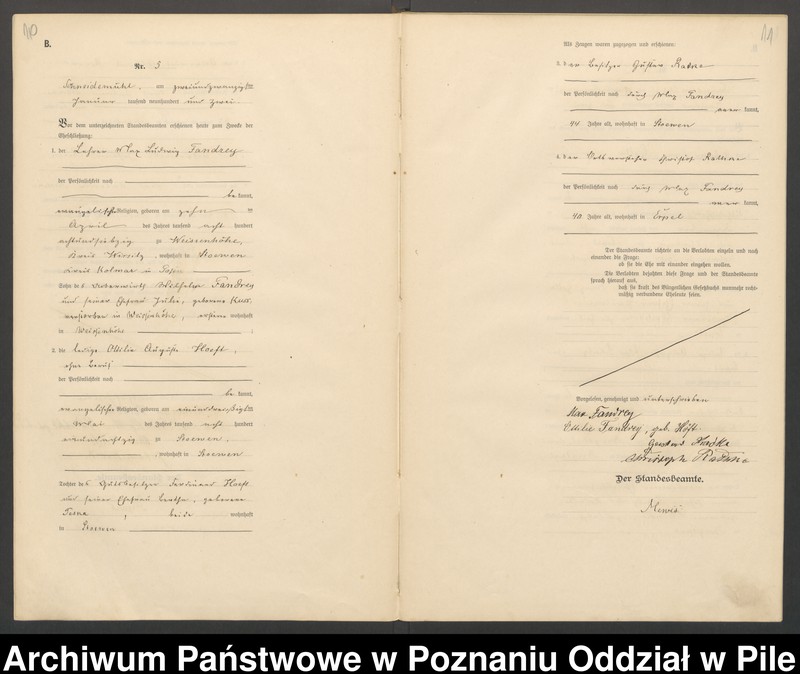 10
B.
Nr. 5
Schneidemühl, am zweiundzwanzigsten
Januar tausend neunhundert und zwei.
Vor dem unterzeichneten Standesbeamten erschienen heute zum Zwecke der
Eheschließung:
1. der Lehrer Max Ludwig Fandrey
der Persönlichkeit nach
be kannt,
evangelischer Religion, geboren am zehn ten
April des Jahres tausend acht hundert
achtundsiebzig zu Weissenhöhe,
Kreis Wirsitz, wohnhaft in Stoewen
Kreis Kolmar in Posen
Sohn des Wilhelm Fandrey
und seiner Ehefrau Julie, geborene
verstorben in Weissenhöhe, wohnhaft
in Weissenhöhe ;
2. die ledige Ottilie Auguste Hoeft,
ohne Beruf
der Persönlichkeit nach
be kannt,
evangelischer Religion, geboren am einunddreißigsten
Mai des Jahres tausend acht hundert
zu Stoewen,
, wohnhaft in Stoewen
Tochter des Gutsbesitzer Ferdinand Hoeft
und seiner Ehefrau Bertha, geborene
, beide wohnhaft
in Stoewen
11
Als Zeugen waren zugezogen und erschienen:
3. der Besitzer Gustav
der Persönlichkeit nach durch Max Fandrey
kannt,
44 Jahre alt, wohnhaft in Stoewen
4. der Christoph
der Persönlichkeit nach durch Max Fandrey
kannt,
40 Jahre alt, wohnhaft in Erpel
Der Standesbeamte richtete an die Verlobten einzeln und nach
einander die Frage:
ob sie die Ehe mit einander eingehen wollen.
Die Verlobten bejahten diese Frage und der Standesbeamte
sprach hierauf aus,
daß sie kraft des Bürgerlichen Gesetzbuchs nunmehr recht-
mäßig verbundene Eheleute seien.
Vorgelesen, genehmigt und unterschrieben
Max Fandrey
Ottilie Fandrey, geb. Höft.
Gustav
Christoph
Der Standesbeamte.
Archiwum Państwowe w Poznaniu Oddział w Pile